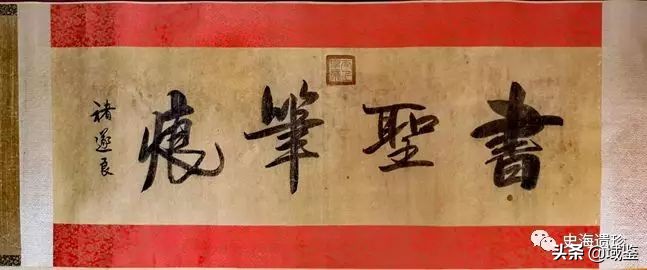 書聖筆痕
褚遂良
史海遺珍
头条@域鉴